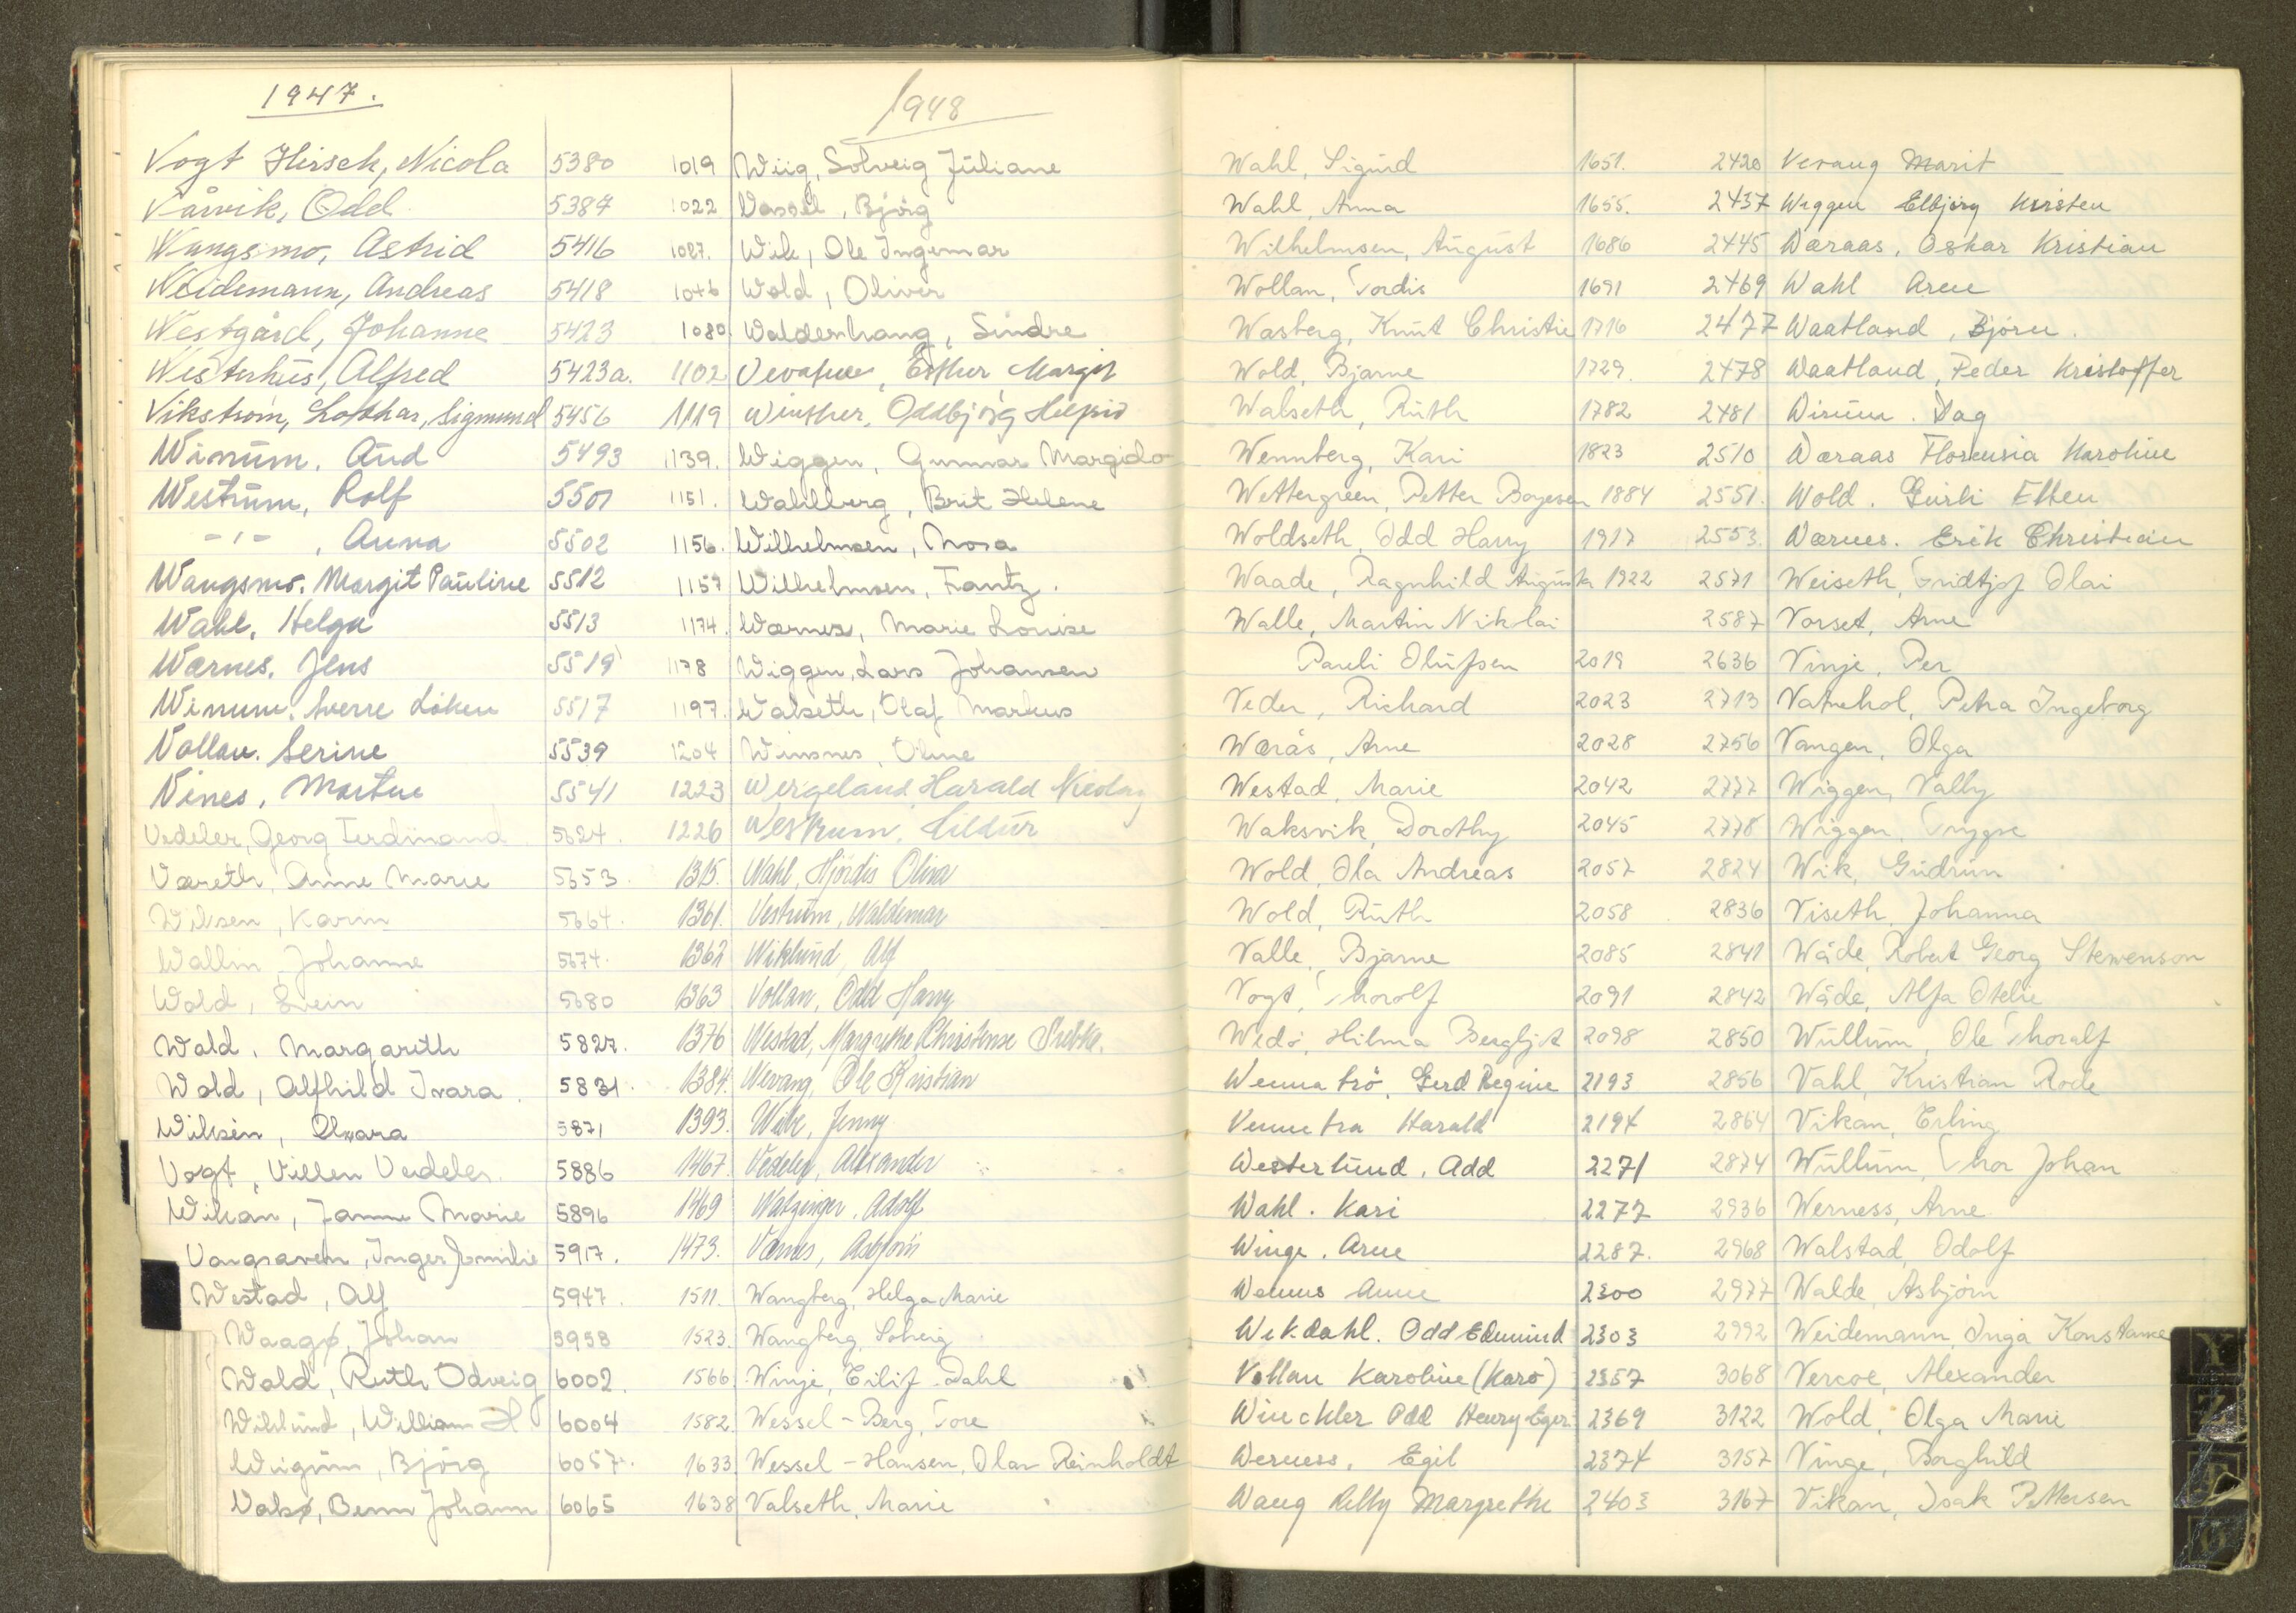 1947.
Vogt Hirsch, Nicola 5380
Vårvik, Odd 5387
Wangsmo, Astrid 5416
Weidemann, Andreas 5418
Westgård, Johanne 5423
Westerhus, Alfred 5423a.
Vikström, Lothar, Sigmund 5456
Winum, Aud 5493
Westrum, Rolf 5501
-"- , Anna 5502
Wangsmo. Margit Pauline 5512
Wahl, Helga 5513
Wærnes. Jens 5519
Winum. Sverre Löken 5517
Vollan. Serine 5539
Vines, Martin 5541
Vedeler, Georg Ferdinand 5624.
Væreth, Anne Marie 5653.
Wilsen, Karin 5664.
Wallin, Johanne 5674.
Wold, Svein 5680
Wold, Margareth 5827.
Wold, Alfhild Ivara 5831.
Wilsen, Olvara 5871
Vogt, Villen Vedeler 5886
Wikan, Janna Marie 5896
Vangraven, Inger Emilie 5917.
Westad, Alf 5947.
Waagø, Johan 5958
Wold, Ruth Odveig 6002.
Wiklund, William H 6004
Wigum, Björg 6057.
Valsø, Benn Johann 6065
1948
1019 Wiig, Solveig Juliane
1022 Vassel, Björg
1027. Wik, Ole Ingemar
1046 Wold, Oliver
1080 Waldenhaug, Sindre
1102 Esther Margit
1119 Winther, Oddbjörg
1139. Wiggen, Gunnar Margido
1151. Wahlberg, Brit Helene
1156. Wilhelmsen, Nora
1157 Wilhelmsen, Frantz.
1174. Wærnes, Marie Louise
1178 Wiggen, Lars Johansen
1197. Walseth, Olaf Markus
1204 Winsnes, Oline
1223 Wergeland Harald Nicolay
1226 Westrum, Hildur
1315. Wahl, Hjördis Oliva
1361. Vestrum, Waldemar
1362 Wiklund, Alf
1363 Vollan, Odd Harry
1376 Westad, Margrethe Christense
1384. Wevang, Ole Kristian
1393. Wik, Jenny
1467. Vedeler, Alexander
1469 Watzinger, Adolf
1473. Værnes, Asbjörn
1511. Wangberg, Helga Marie
1523. Wangberg, Solveig
1566 Winje, Eilif Dahl
1582. Wessel-Berg, Tore
1633 Wessel-Hansen, Olav Reinholdt
1638 Valseth, Marie
Wahl, Sigurd 1651.
Wahl, Anna 1655.
Wilhelmsen, August 1686
Wollan, Tordis 1691
Wasberg, Knut Christie 1716
Wold, Bjarne 1729.
Walseth, Ruth 1782
Wennberg, Kari 1823
Wettergreen, Petter Boyesen 1884
Woldseth, Odd Harry 1917
Waade, Ragnhild Augusta 1922
Walle, Martin Nikolai
Pauli Olufsen 2019
Veder, Richard 2023
Wærås, Arne 2028
Westad, Marie 2042
Waksvik, Dorothy 2045
Wold, Ola Andreas 2057
Wold, Ruth 2058
Valle, Bjarne 2085
Vogt, Thorolf 2091
Wedø, Hilma Bergljot 2098
Wennatrö, Gerd Regine 2193
Vennetra Harald 2194
Westerlund, Odd 2271
Wahl. Kari 2277
Winge. Arne 2287.
Anne 2300
Wekdahl. Odd Edmund 2303
Vollan Karoline (Karo) 2357
Winckler Odd Henry Eger 2369
Werness, Egil 2374
Wang Kelly Margrethe 2403
2420 Vevang Marit
2437 Wiggen Elbjörg Kirsten
2445 Wæraas, Oskar Kristian
2469 Wahl Arne
2477 Waatland, Björn.
2478 Waatland, Peder Kristoffer
2481 Winum. Dag
2510 Wæraas Florensia Karoline
2551. Wold. Gurli Ellen
2553. Wærnes. Erik Christian
2571 Weiseth, Fridtjof Olai
2587 Vorset, Arne
2636 Vinje, Per
2713 Vatnehol, Petra Ingeborg
2756 Vangen, Olga
2777 Wiggen, Vally
2778 Wiggen, Trygve
2824 Wik, Gudrun
2836 Viseth, Johanna
2841 Wåde, Robert Georg Stewenson
2842 Wåde, Alfa Otelie
2850 Wullum, Ole Thoralf
2856 Vahl, Kristian Rode
2864 Vikan, Erling
2874 Wullum, Thor Johan
2936 Werness, Arne
2968 Walstad, Odolf
2977 Walde, Asbjörn
2992 Weidemann, Inga Konstanse
3068 Vercoe, Alexander
3122 Wold, Olga Marie
3157 Vinge, Borghild
3167 Vikan, Isak Pettersen
Y
Z